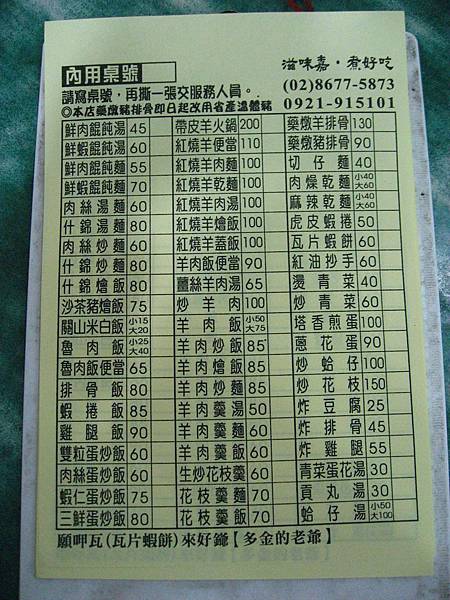 內用桌號
滋味嘉·煮好吃
請寫桌號，再撕一張交服務人員。
(02)8677-5873
◎本店藥燉豬排骨即日起改用省產溫體豬
0921-915101
鮮肉餛飩湯 45
鮮蝦餛飩湯 60
鮮肉餛飩麵 55
鮮蝦餛飩麵 70
肉絲湯麵 60
什錦湯麵 80
肉絲炒麵 60
什錦炒麵 80
什錦燴飯 80
沙茶豬燴飯 75
關山米白飯 小15 大20
魯肉飯 小25 大40
魯肉飯便當 65
排骨飯 80
蝦捲飯 85
雞腿飯 90
雙粒蛋炒飯 60
肉絲蛋炒飯 60
蝦仁蛋炒飯 75
三鮮蛋炒飯 80
帶皮羊火鍋 200
紅燒羊便當 110
紅燒羊乾麵 100
紅燒羊肉湯 100
紅燒羊燴飯 100
紅燒羊蓋飯 100
羊肉飯便當 90
薑絲羊肉湯 65
炒羊肉 100
羊肉飯 小50 大75
羊肉炒飯 85
羊肉燴飯 85
羊肉炒麵 85
羊肉羹湯 50
羊肉羹麵 60
羊肉羹飯 60
生炒花枝羹 60
花枝羹麵 70
花枝羹飯 70
藥燉羊排骨 130
藥燉豬排骨 90
切仔麵 40
肉燥乾麵 小40 大60
麻辣乾麵 小40 大60
虎皮蝦捲 50
瓦片蝦餅 60
紅油抄手 60
燙青菜 40
炒青菜 60
塔香煎蛋 100
蔥花蛋 90
炒蛤仔 100
炒花枝 150
炸豆腐 25
炸排骨 45
炸雞腿 55
青菜蛋花湯 30
貢丸湯 30
蛤仔湯 小50 大100
願呷瓦(瓦片蝦餅)來好鎵【多金的老爺】